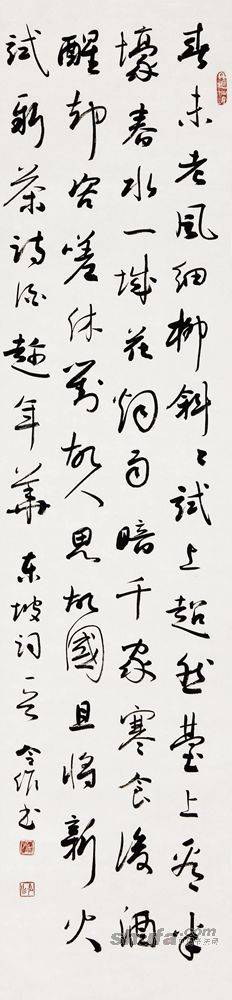 春未老風細柳斜々試上超然臺上看半
壕春水一城花烟雨暗千家寒食後酒
醒却咨嗟休對故人思故國且將新火
試新茶詩酒趁年華 東坡詞一首 書
shufa.com